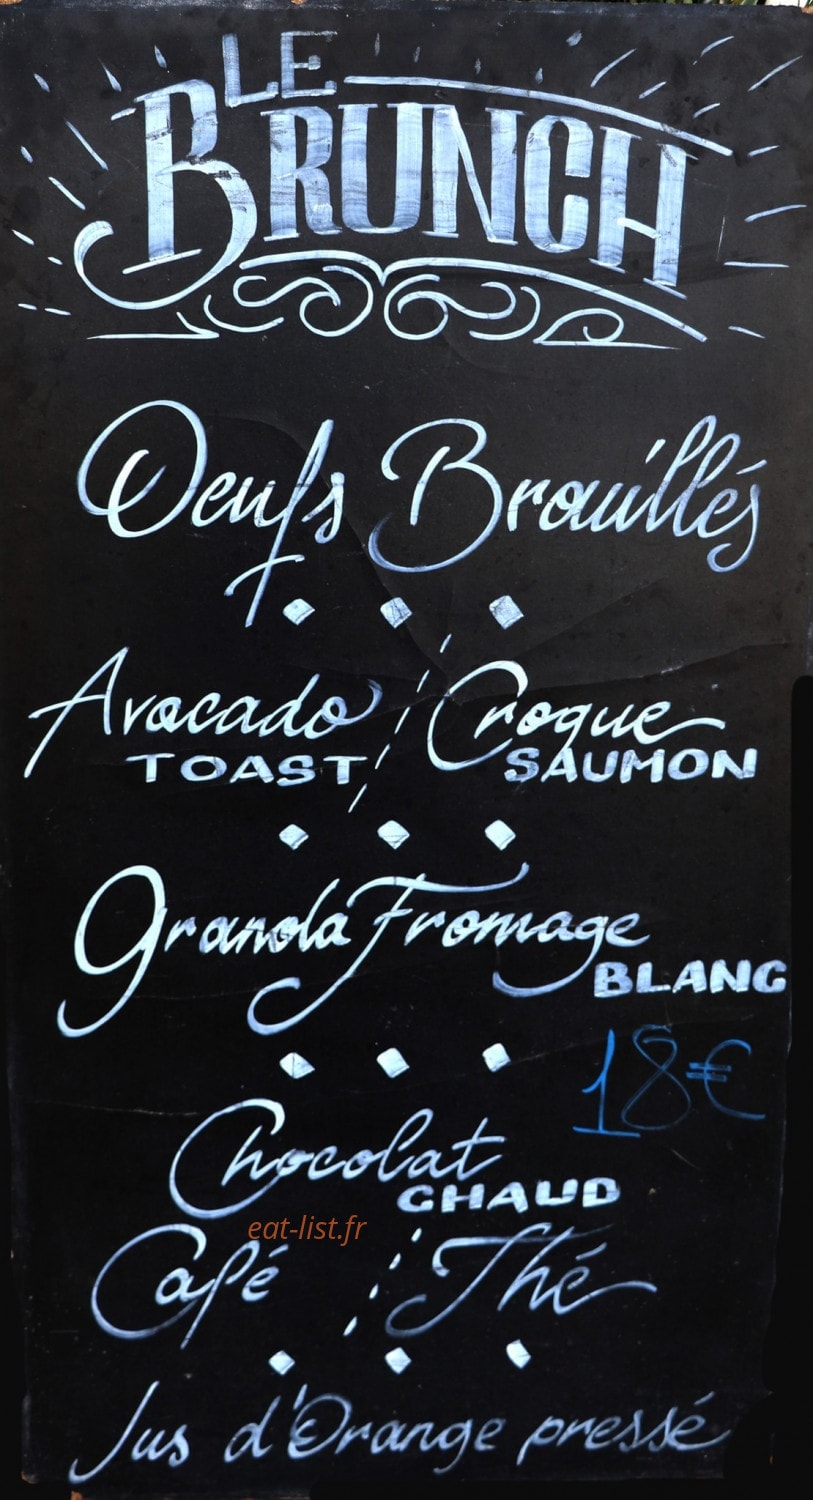 LE
BRUNCH
Oeufs Brouillés
Avocado Croque
TOAST SAUMON
Granola Fromage
BLANC
18€
Chocolat
CHAUD
eat-list.fr
Café Thé
Jus d'Orange pressé